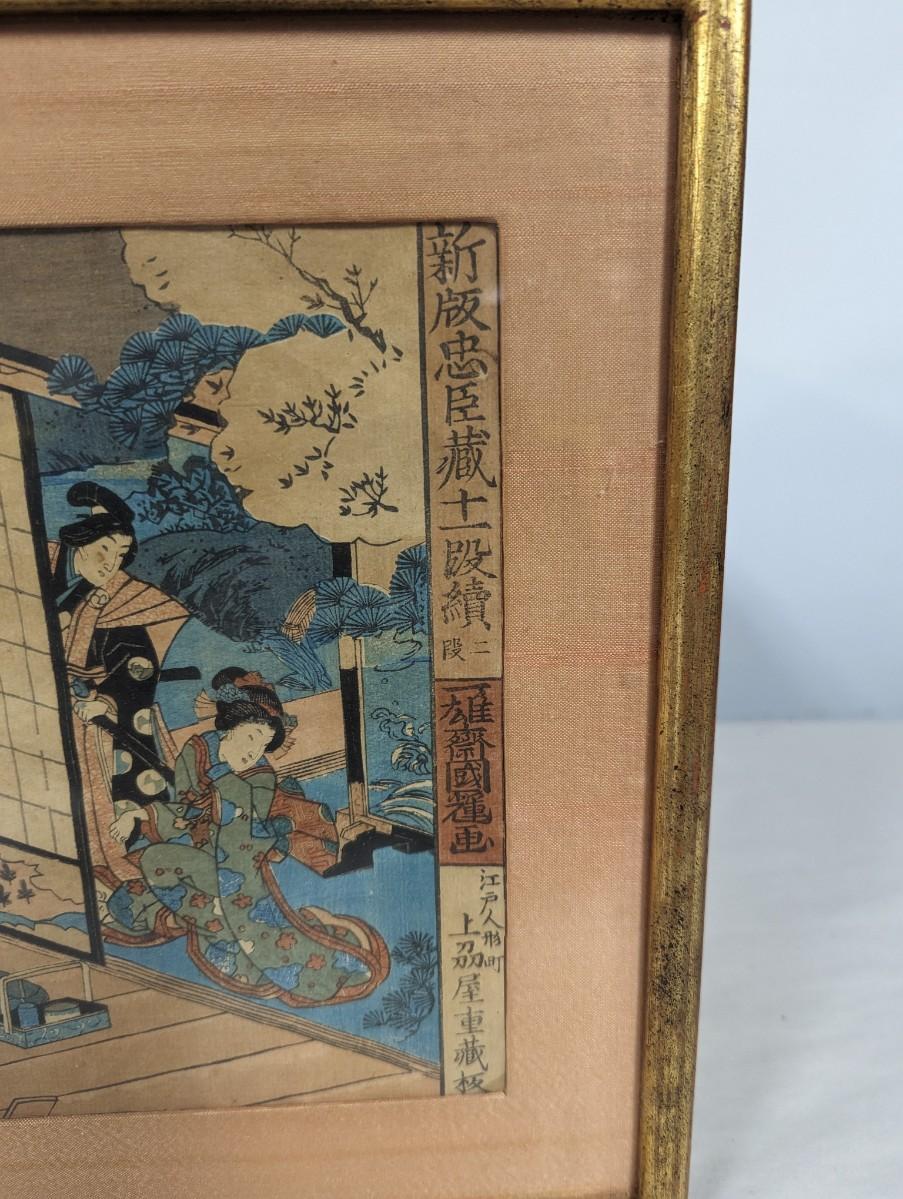 新版忠臣藏十一段續
二段
一雄齋國輝画
江戸人形町
上刕屋重藏板